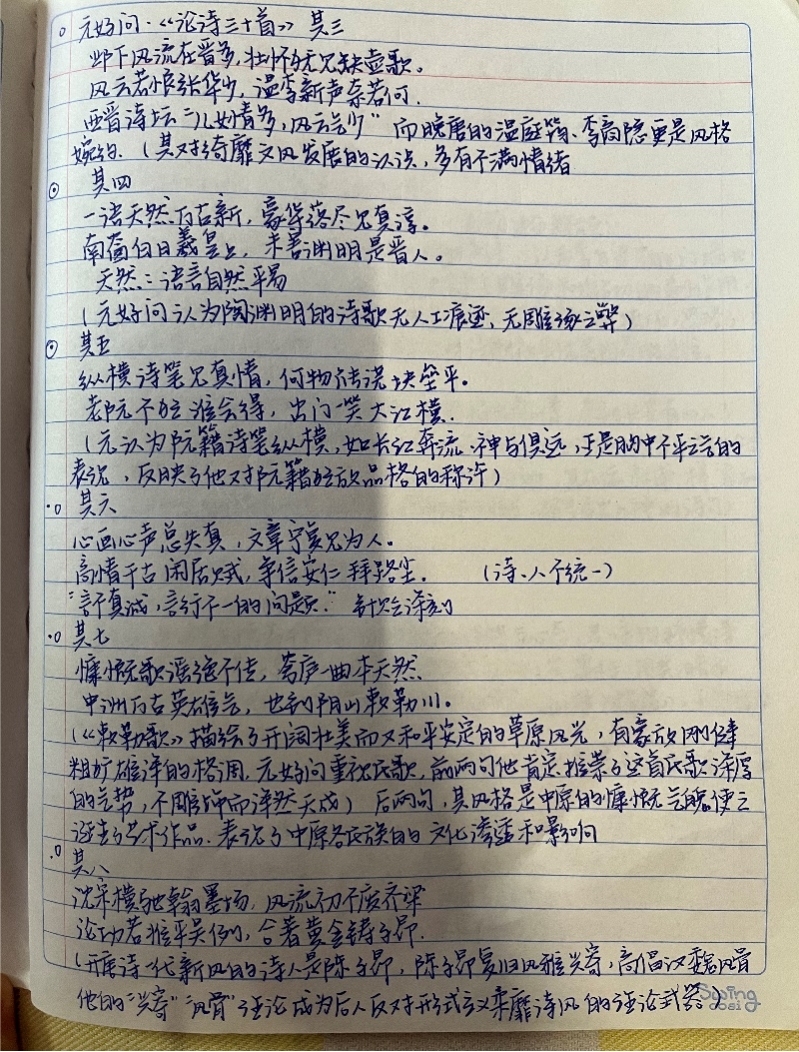 元好问·《论诗三十首》 其三
邺下风流在晋多,壮怀犹见缺壶歌。
风云若恨张华少,温李新声奈若何.
西晋诗坛"儿女情多,风云气少" 而晚唐的温庭筠、李商隐更是风格
婉约.(其对绮靡文风发展的认识,多有不满情绪
其四
一语天然万古新,豪华落尽见真淳。
南窗白日羲皇上,未害渊明是晋人。
天然:语言自然平易
(元好问认为陶渊明的诗歌无人工痕迹,无雕琢之弊)
其五
纵横诗笔见真情,何物能浇块垒平。
老阮不狂谁会得,出门一笑大江横.
(元认为阮籍诗笔纵横,如长江奔流.神与俱远,正是胸中不平之气的
表现,反映了他对阮籍狂放品格的称许)
其六
心画心声总失真,文章宁复见为人。
高情千古闲居赋,争信安仁拜路尘. (诗、人不统一)
"言不真诚,言行不一的问题." 针砭深刻
其七
慷慨歌谣绝不传,穹庐一曲本天然
中洲万古英雄气,也到阴山敕勒川。
(《敕勒歌》描绘了开阔壮美而又和平安定的草原风光,有豪放刚健
粗犷雄浑的格调.元好问重视民歌,前两句他肯定推崇了这首民歌浑厚
的气势,不雕饰而浑然天成) 后两句,其风格是中原的慷慨气魄使之
诞生了艺术作品.表现了中原各民族的文化渗透和影响
其八
沈宋横驰翰墨场,风流初不废齐梁
论功若准平吴例,合著黄金铸子昂.
(开唐诗一代新风的诗人是陈子昂,陈子昂复归风雅兴寄,高倡汉魏风骨
他的"兴寄""风骨"理论成为后人反对形式主义柔靡诗风的理论武器)